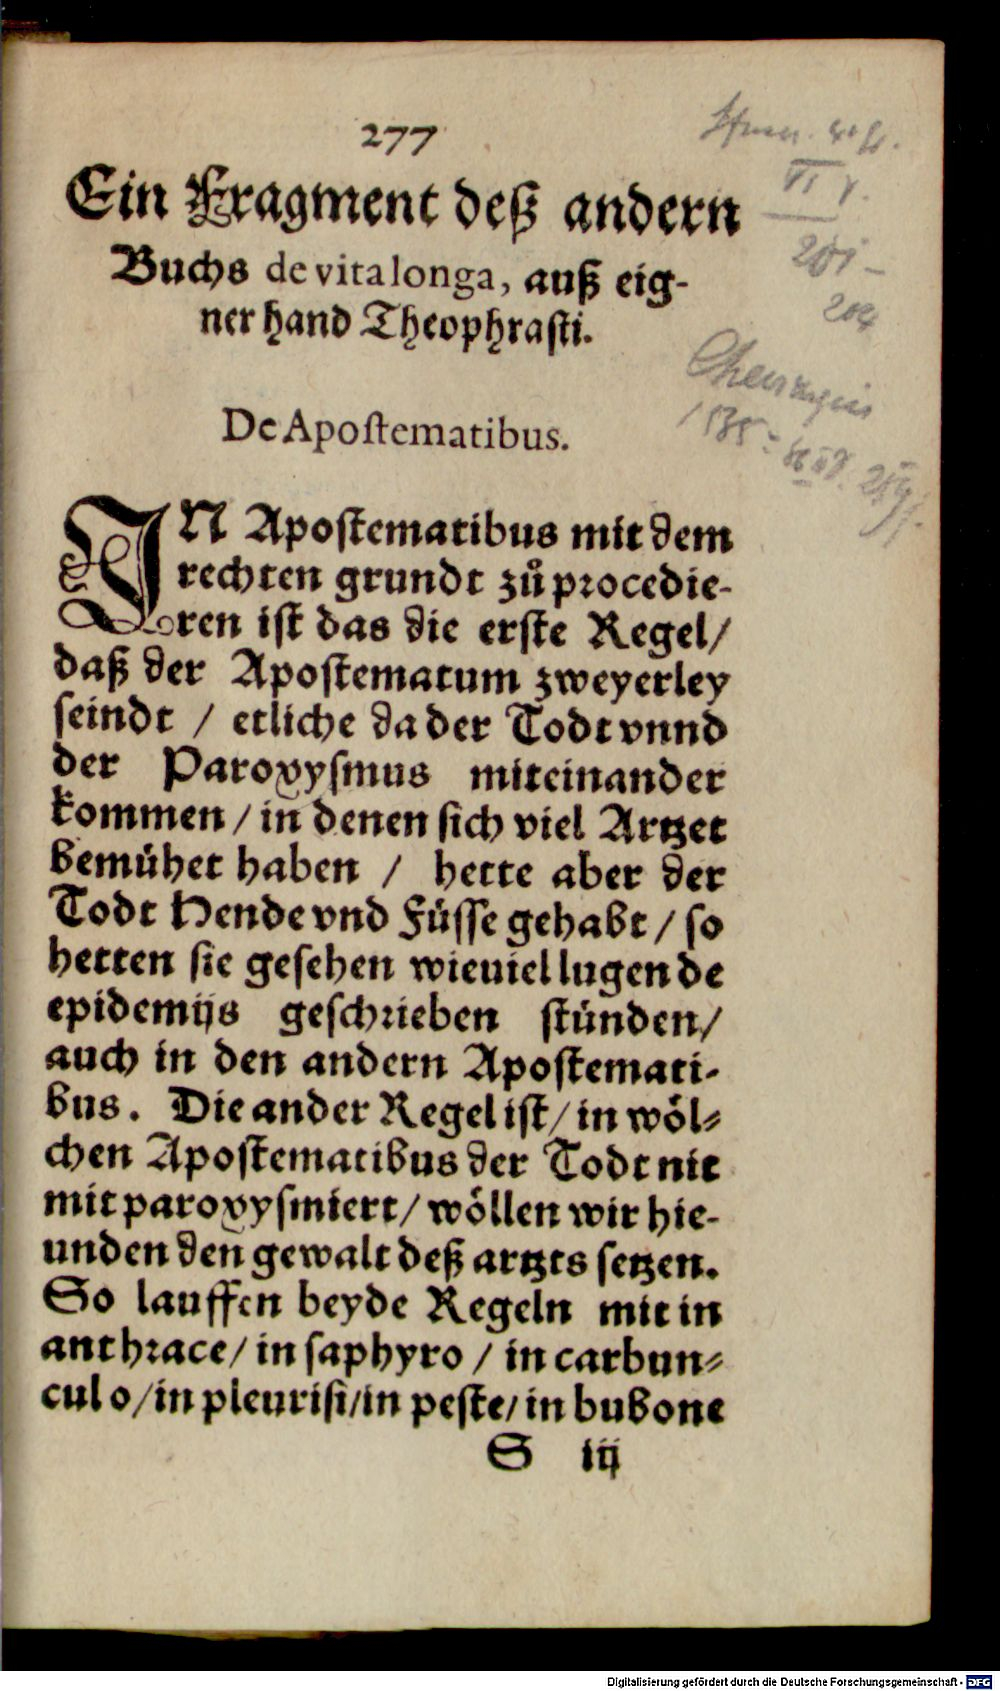 277
Ein Fragment deß andern
Buchs de vita longa, auß eig-
ner hand Theophrasti.
De Apostematibus.
IN Apostematibus mit dem
rechten grundt zů procedie-
ren ist das die erste Regel/
daß der Apostematum zweyerley
seindt / etliche da der Todt vnnd
der Paroxysmus miteinander
kommen / in denen sich viel Artzet
bemühet haben / hette aber der
Todt Hende vnd Füsse gehabt / so
hetten sie gesehen wieuiel lugen de
epidemijs geschrieben stünden/
auch in den andern Apostemati-
bus. Die ander Regel ist/ in wöl-
chen Apostematibus der Todt nit
mit paroxysmiert/ wöllen wir hie-
unden den gewalt deß artzts setzen.
So lauffen beyde Regeln mit in
anthrace/ in saphyro / in carbun-
culo/in pleurisi/in peste/ in bubone
S iij
VI
201-
204
1535
Digitalisierung gefördert durch die Deutsche Forschungsgemeinschaft - DFG